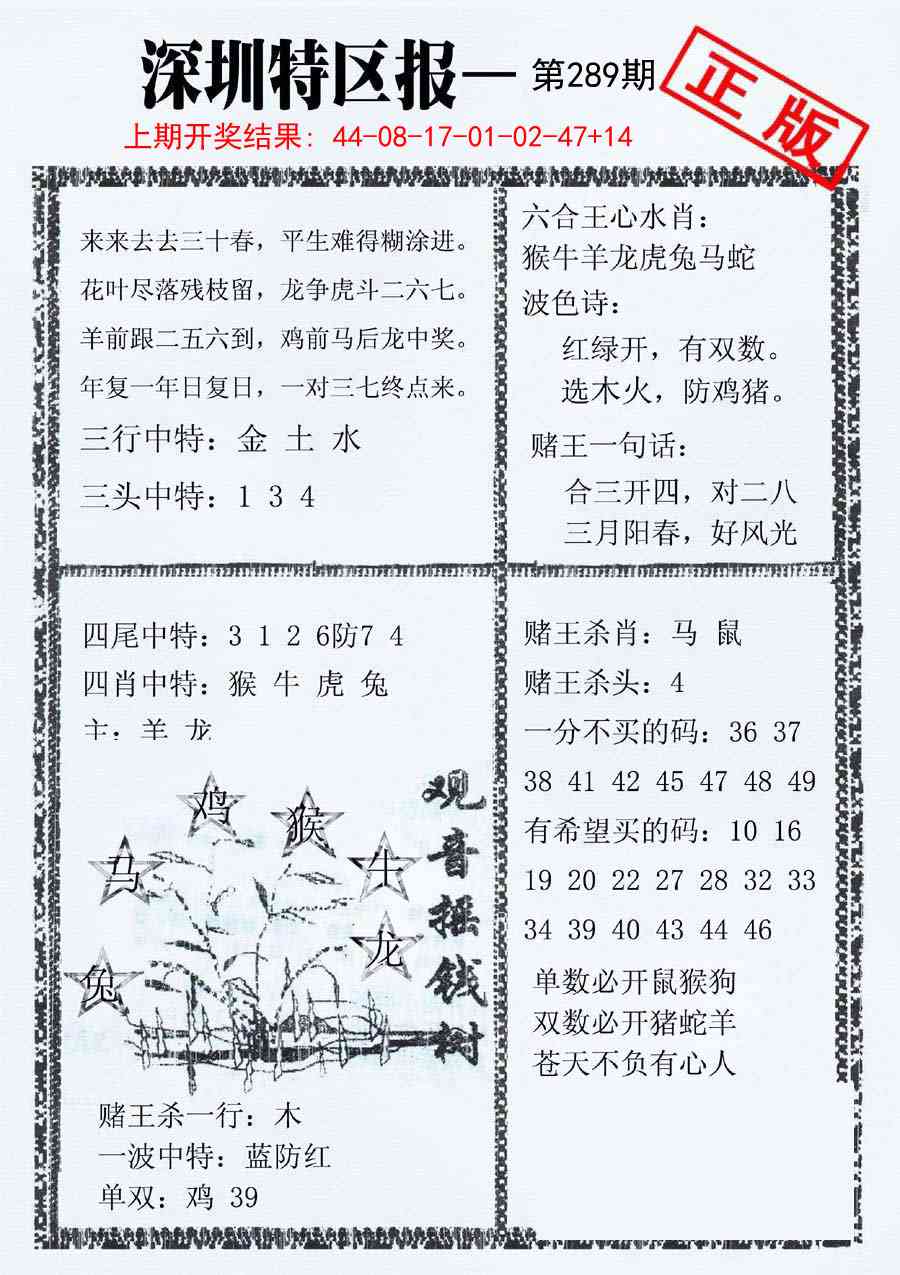 深圳特区报— 第289期
正版
上期开奖结果：44-08-17-01-02-47+14
来来去去三十春，平生难得糊涂进。
花叶尽落残枝留，龙争虎斗二六七。
羊前跟二五六到，鸡前马后龙中奖。
年复一年日复日，一对三七终点来。
三行中特：金 土 水
三头中特：1 3 4
六合王心水肖：
猴牛羊龙虎兔马蛇
波色诗：
红绿开，有双数。
选木火，防鸡猪。
赌王一句话：
合三开四，对二八
三月阳春，好风光
四尾中特：3 1 2 6防7 4
四肖中特：猴 牛 虎 兔
主：羊 龙
鸡
猴
马
牛
龙
兔
观音摇钱树
赌王杀一行：木
一波中特：蓝防红
单双：鸡 39
赌王杀肖：马 鼠
赌王杀头：4
一分不买的码：36 37
38 41 42 45 47 48 49
有希望买的码：10 16
19 20 22 27 28 32 33
34 39 40 43 44 46
单数必开鼠猴狗
双数必开猪蛇羊
苍天不负有心人